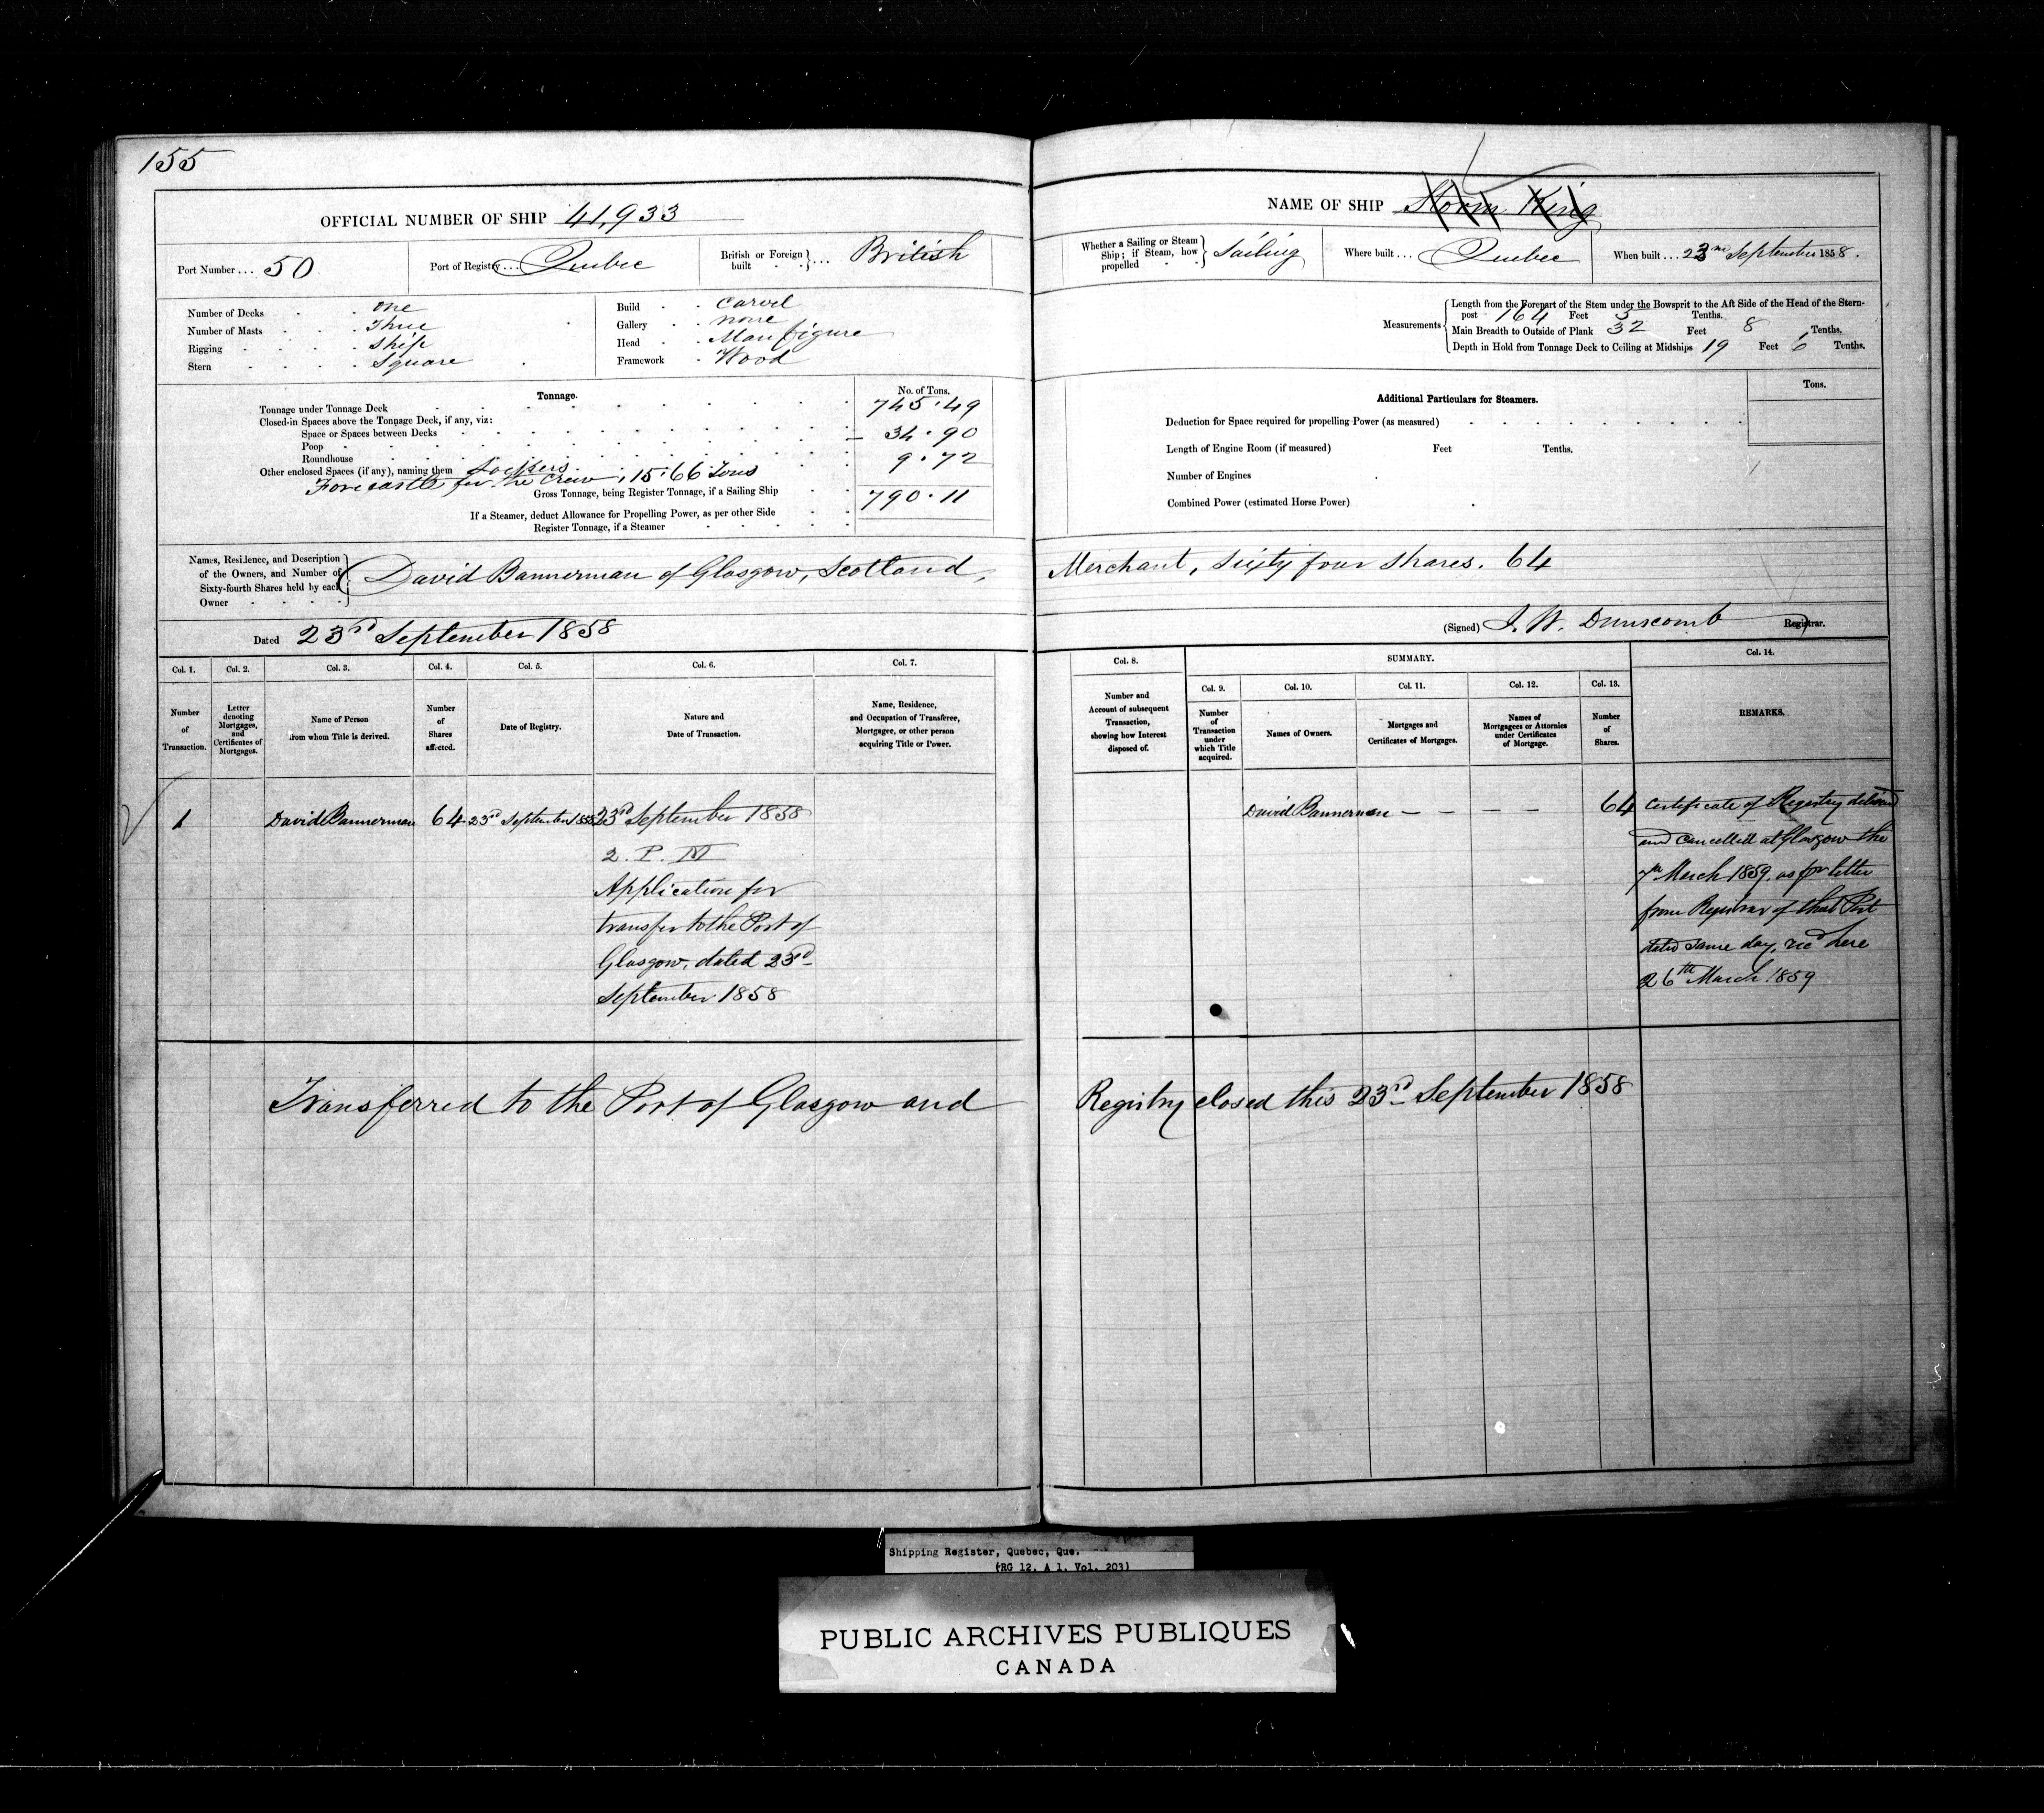 155
OFFICIAL NUMBER OF SHIP 41,933
NAME OF SHIP Storm King
Port Number ... 50
Port of Registry ... Quebec
British or Foreign built ... British
Whether a Sailing or Steam Ship; if Steam, how propelled Sailing
Where built ... Quebec
When built ... 23rd September 1858.
Number of Decks one
Number of Masts Three
Rigging Ship
Stern Square
Build Carvel
Gallery none
Head Man figure
Framework Wood
Measurements
Length from the Forepart of the Stem under the Bowsprit to the Aft Side of the Head of the Stern-
post 164 Feet 3 Tenths.
Main Breadth to Outside of Plank 32 Feet 8 Tenths.
Depth in Hold from Tonnage Deck to Ceiling at Midships 19 Feet 6 Tenths.
Tonnage. No. of Tons.
Tonnage under Tonnage Deck 745.49
Closed-in Spaces above the Tonnage Deck, if any, viz:
Space or Spaces between Decks
Poop 34.90
Roundhouse
Other enclosed Spaces (if any), naming them Lockers 9.72
Forecastle for the Crew, 15.66 Tons
Gross Tonnage, being Register Tonnage, if a Sailing Ship 790.11
If a Steamer, deduct Allowance for Propelling Power, as per other Side
Register Tonnage, if a Steamer
Additional Particulars for Steamers. Tons.
Deduction for Space required for propelling Power (as measured)
Length of Engine Room (if measured) Feet Tenths.
Number of Engines
Combined Power (estimated Horse Power)
Names, Residence, and Description
of the Owners, and Number of
Sixty-fourth Shares held by each
Owner
David Bannerman of Glasgow, Scotland, Merchant, Sixty four Shares. 64
Dated 23rd September 1858
(Signed) J. W. Dunscomb Registrar.
Col. 1. Col. 2. Col. 3. Col. 4. Col. 5. Col. 6. Col. 7.
Number of Transaction.
Letter denoting Mortgages, and Certificates of Mortgages.
Name of Person from whom Title is derived.
Number of Shares affected.
Date of Registry.
Nature and Date of Transaction.
Name, Residence, and Occupation of Transferee, Mortgagee, or other person acquiring Title or Power.
Col. 8. SUMMARY. Col. 14.
Col. 9. Col. 10. Col. 11. Col. 12. Col. 13.
Number and Account of subsequent Transaction, showing how Interest disposed of.
Number of Transaction under which Title acquired.
Names of Owners.
Mortgages and Certificates of Mortgages.
Names of Mortgagees or Attornies under Certificates of Mortgage.
Number of Shares.
REMARKS.
1 David Bannerman 64 23rd September 1858 23rd September 1858
2. P. M
Application for
transfer to the Port of
Glasgow, dated 23rd
September 1858
David Bannerman — — — — 64
Certificate of Registry delivd
and Cancelled at Glasgow the
7th March 1859, as per letter
from Registrar of that Port
dated same day, recd here
26th March 1859
Transferred to the Port of Glasgow and Registry closed this 23rd September 1858
Shipping Register, Quebec, Que.
(RG 12, A 1, Vol. 203)
PUBLIC ARCHIVES PUBLIQUES
CANADA